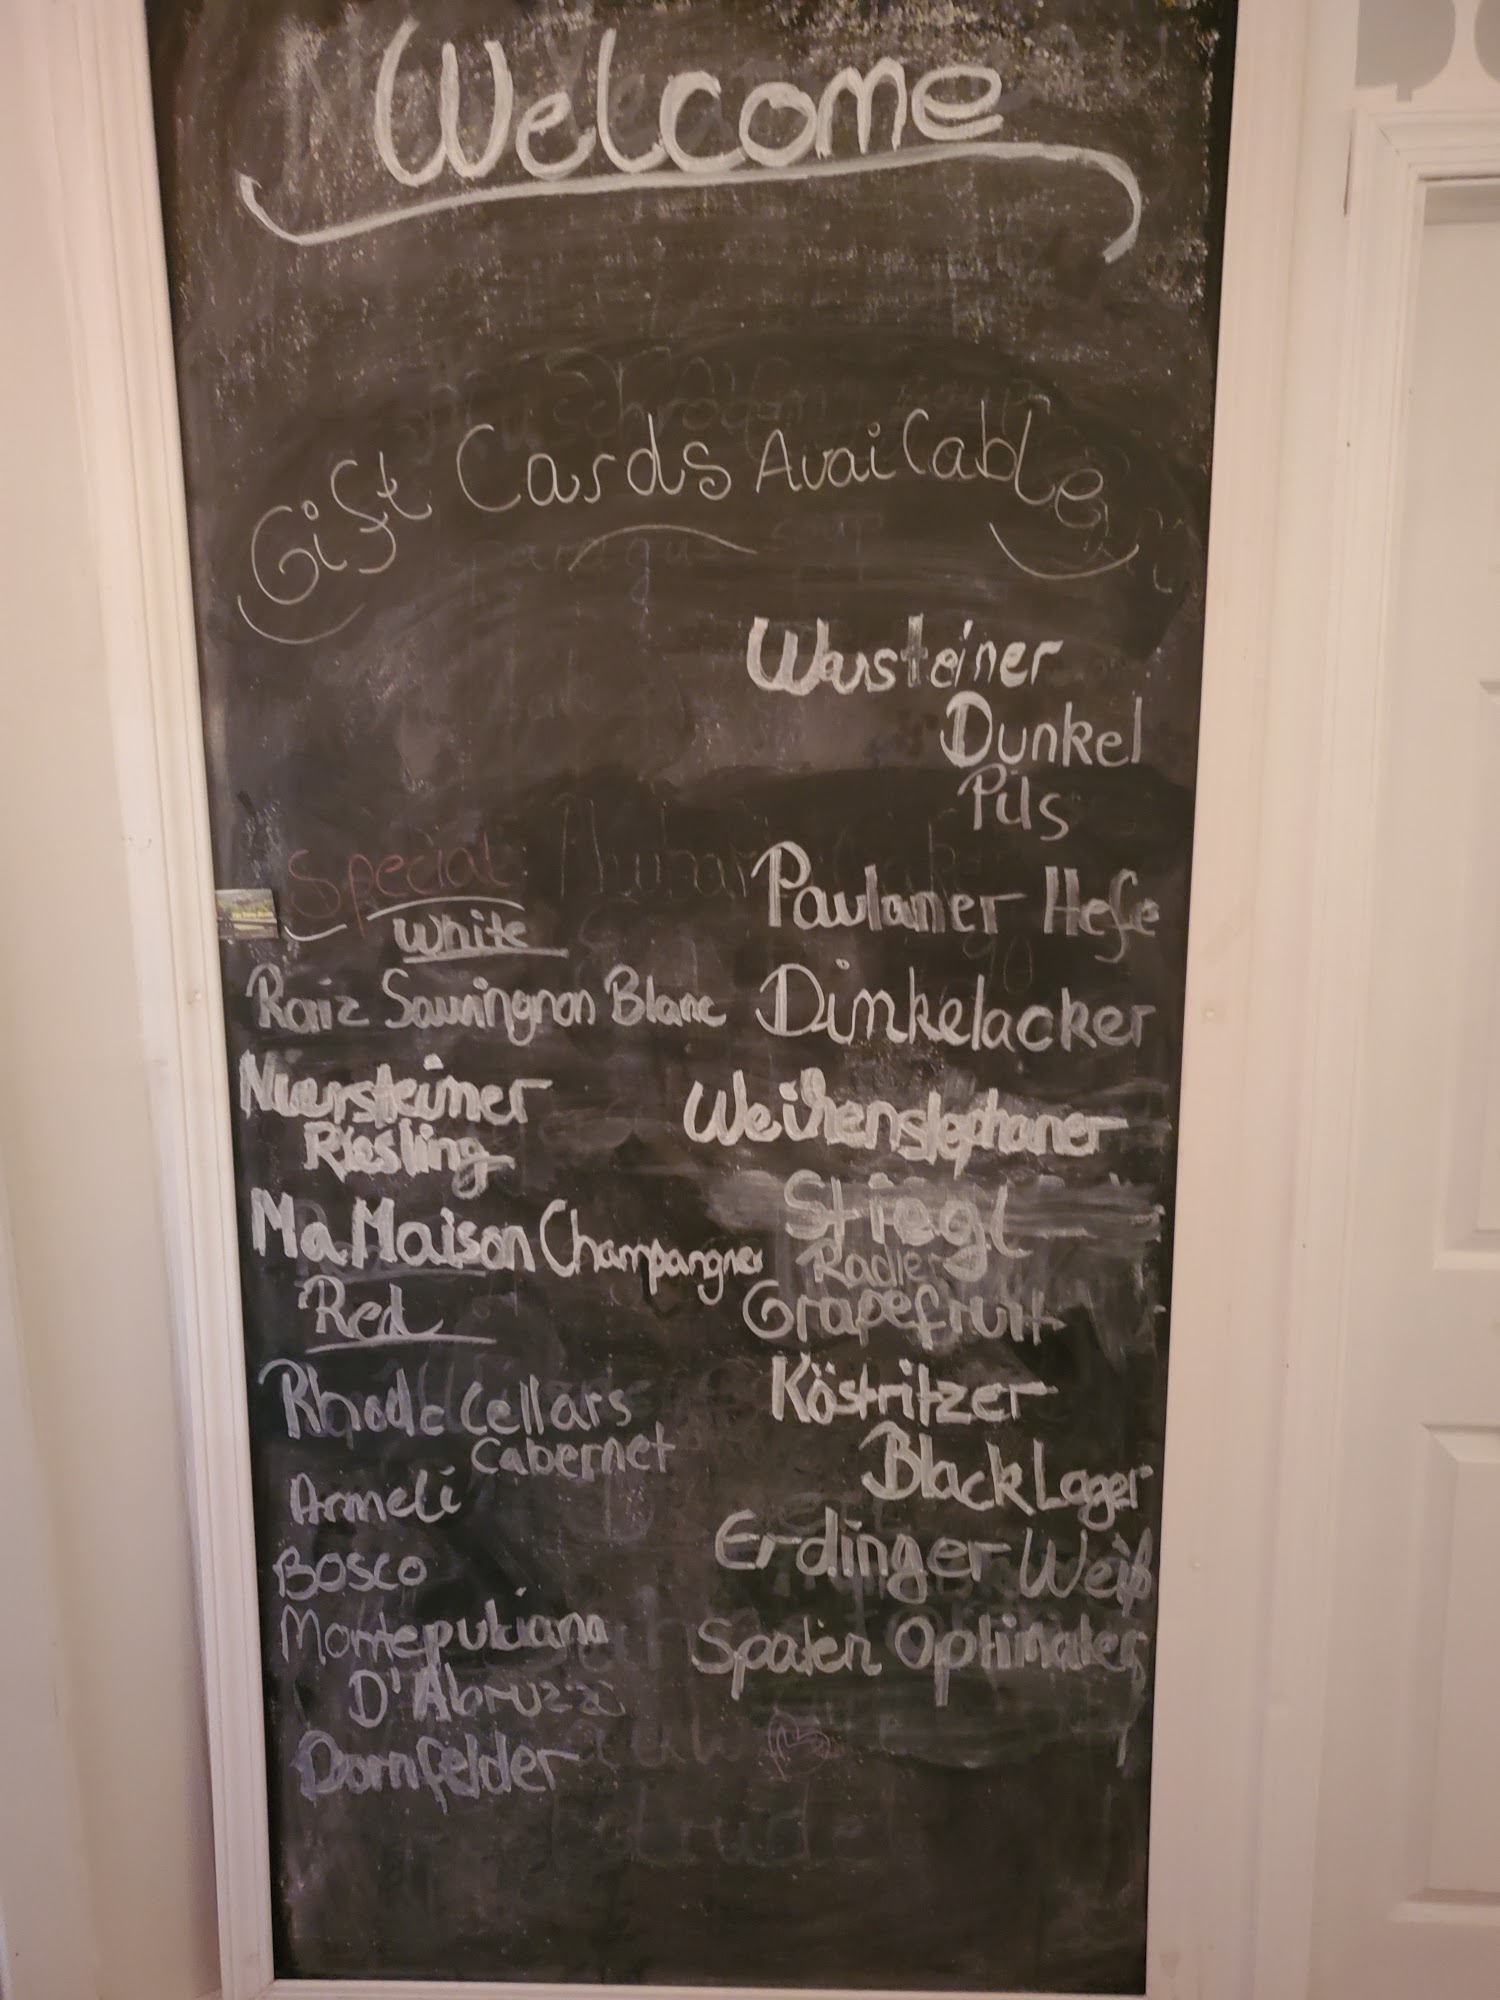 Welcome
Gift Cards Available
Warsteiner
Dunkel
Pils
Paulaner Hefe
Dinkelacker
Weihenstephaner
Stiegl
Radler
Grapefruit
Köstritzer
Black Lager
Erdinger Weiß
Spaten Optimator
Special
White
Raiz Sauvingnon Blanc
Niersteiner
Riesling
Ma Maison Champangner
Red
Rhode Cellars
Cabernet
Armeli
Bosco
Montepulciana
D'Abruzzi
Dornfelder